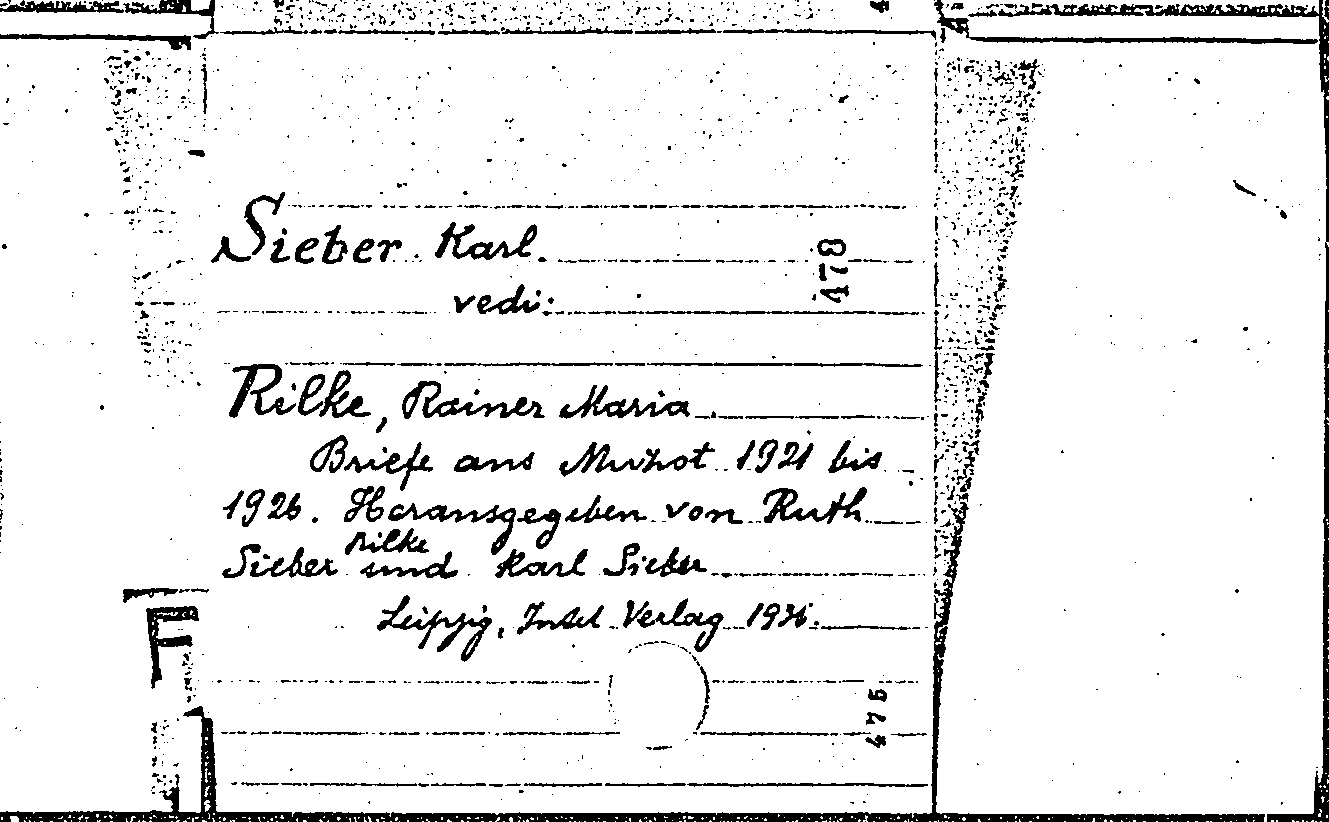 Sieber Karl.
478
vedi:
Rilke, Rainer Maria.
Briefe aus Muzot 1921 bis
1926. Herausgegeben von Ruth
Sieber Rilke und Karl Sieber
Leipzig, Insel Verlag
475